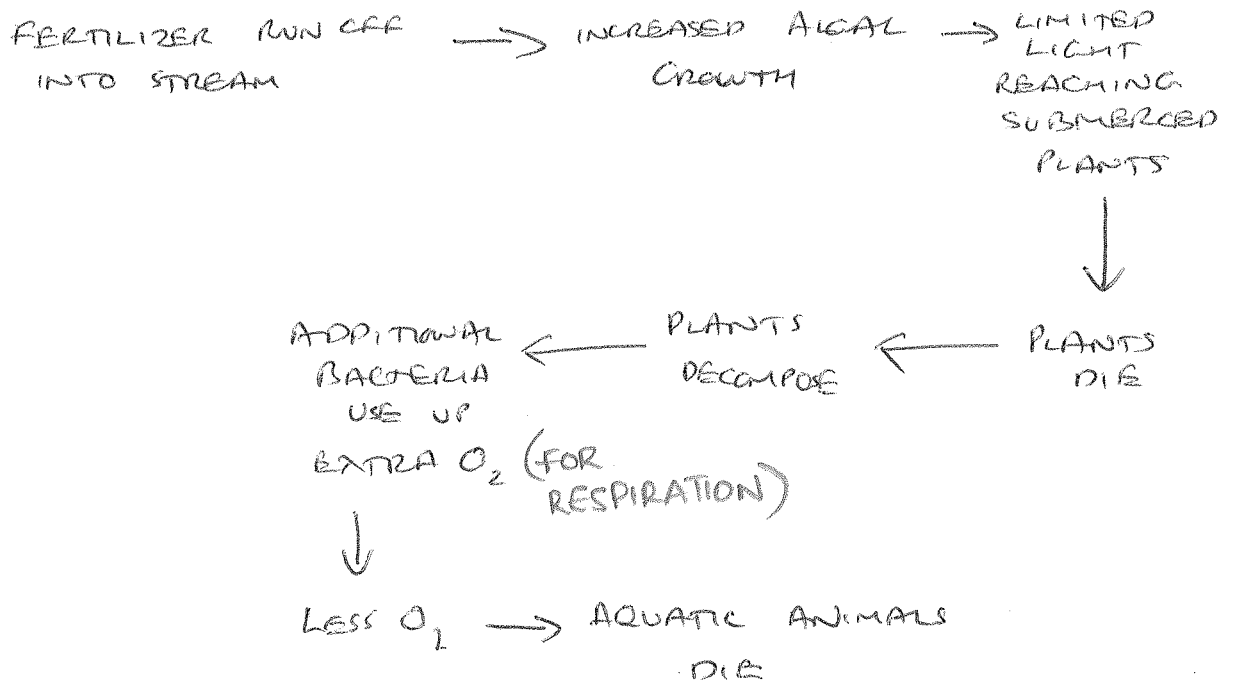 FERTILIZER RUN OFF
INTO STREAM
INCREASED ALGAL
GROWTH
LIMITED
LIGHT
REACHING
SUBMERGED
PLANTS
PLANTS
DIE
PLANTS
DECOMPOSE
ADDITIONAL
BACTERIA
USE UP
EXTRA O₂ (FOR
RESPIRATION)
LESS O₂
AQUATIC ANIMALS
DIE